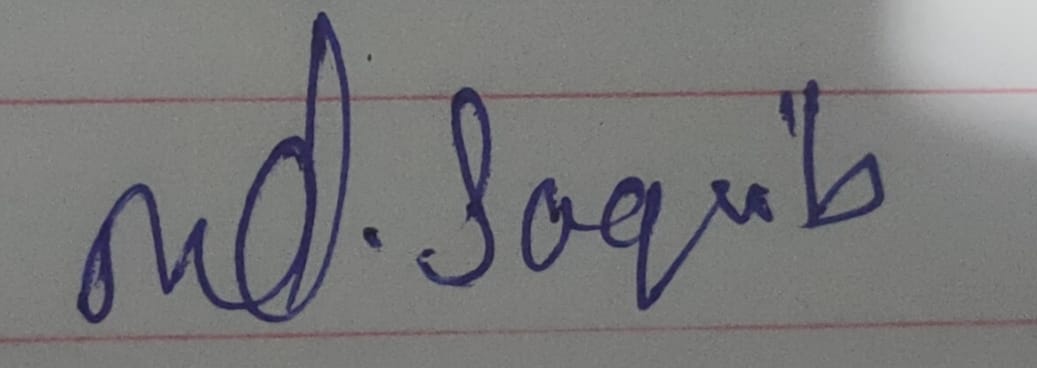 Md. Saquib